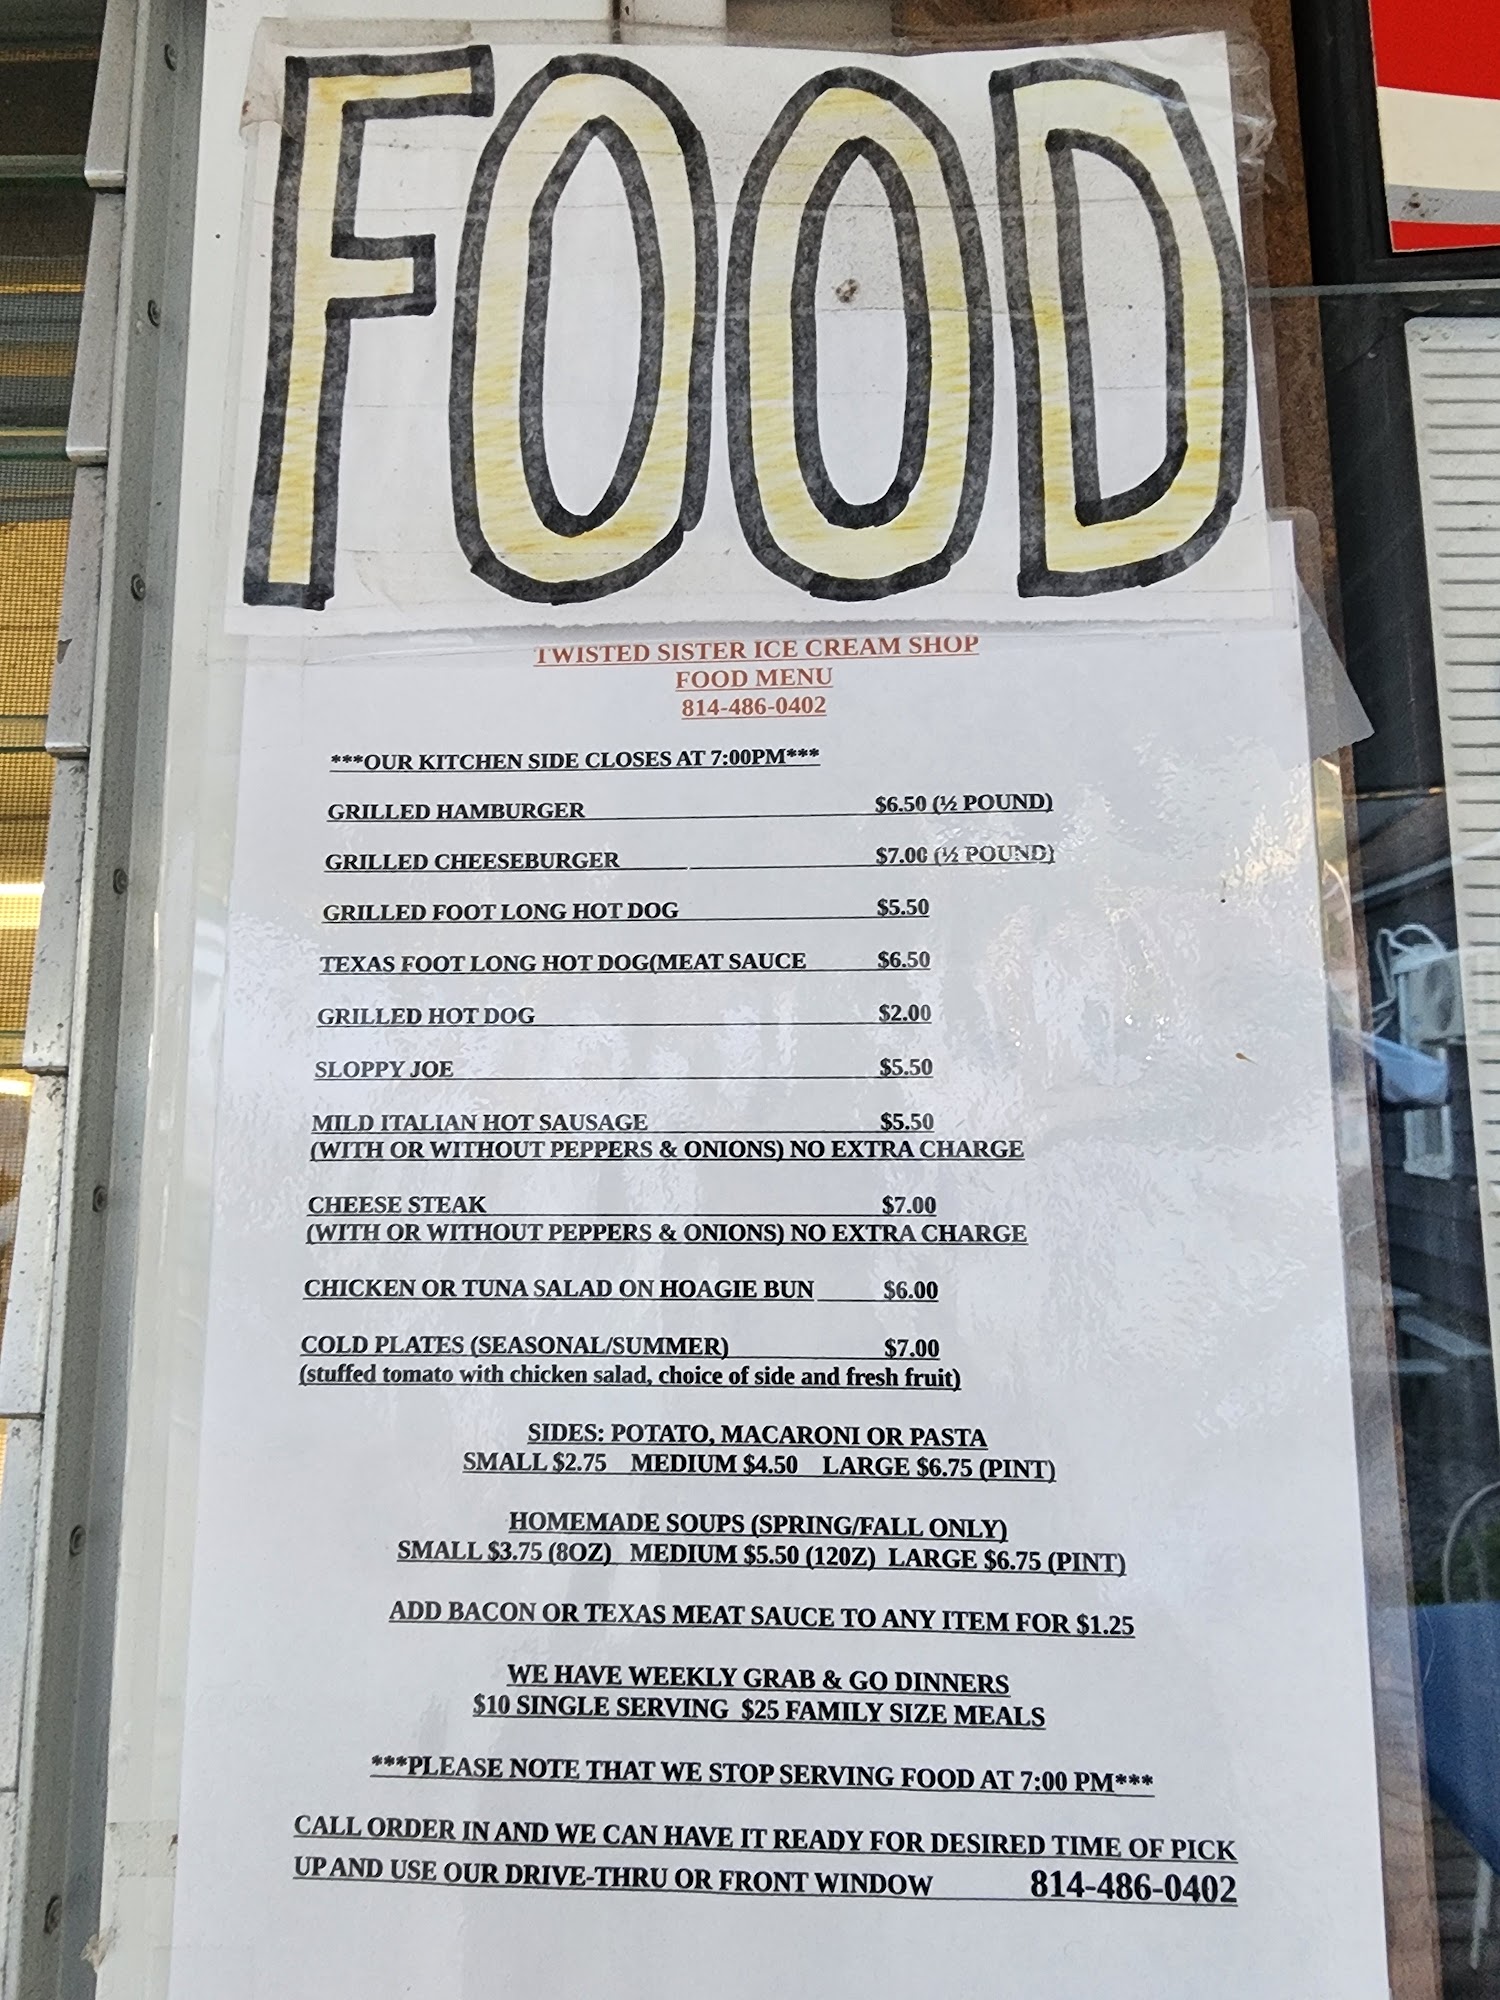 FOOD
TWISTED SISTER ICE CREAM SHOP
FOOD MENU
814-486-0402
***OUR KITCHEN SIDE CLOSES AT 7:00PM***
GRILLED HAMBURGER $6.50 (½ POUND)
GRILLED CHEESEBURGER $7.00 (½ POUND)
GRILLED FOOT LONG HOT DOG $5.50
TEXAS FOOT LONG HOT DOG(MEAT SAUCE $6.50
GRILLED HOT DOG $2.00
SLOPPY JOE $5.50
MILD ITALIAN HOT SAUSAGE $5.50
(WITH OR WITHOUT PEPPERS & ONIONS) NO EXTRA CHARGE
CHEESE STEAK $7.00
(WITH OR WITHOUT PEPPERS & ONIONS) NO EXTRA CHARGE
CHICKEN OR TUNA SALAD ON HOAGIE BUN $6.00
COLD PLATES (SEASONAL/SUMMER) $7.00
(stuffed tomato with chicken salad, choice of side and fresh fruit)
SIDES: POTATO, MACARONI OR PASTA
SMALL $2.75 MEDIUM $4.50 LARGE $6.75 (PINT)
HOMEMADE SOUPS (SPRING/FALL ONLY)
SMALL $3.75 (8OZ) MEDIUM $5.50 (120Z) LARGE $6.75 (PINT)
ADD BACON OR TEXAS MEAT SAUCE TO ANY ITEM FOR $1.25
WE HAVE WEEKLY GRAB & GO DINNERS
$10 SINGLE SERVING $25 FAMILY SIZE MEALS
***PLEASE NOTE THAT WE STOP SERVING FOOD AT 7:00 PM***
CALL ORDER IN AND WE CAN HAVE IT READY FOR DESIRED TIME OF PICK
UP AND USE OUR DRIVE-THRU OR FRONT WINDOW 814-486-0402